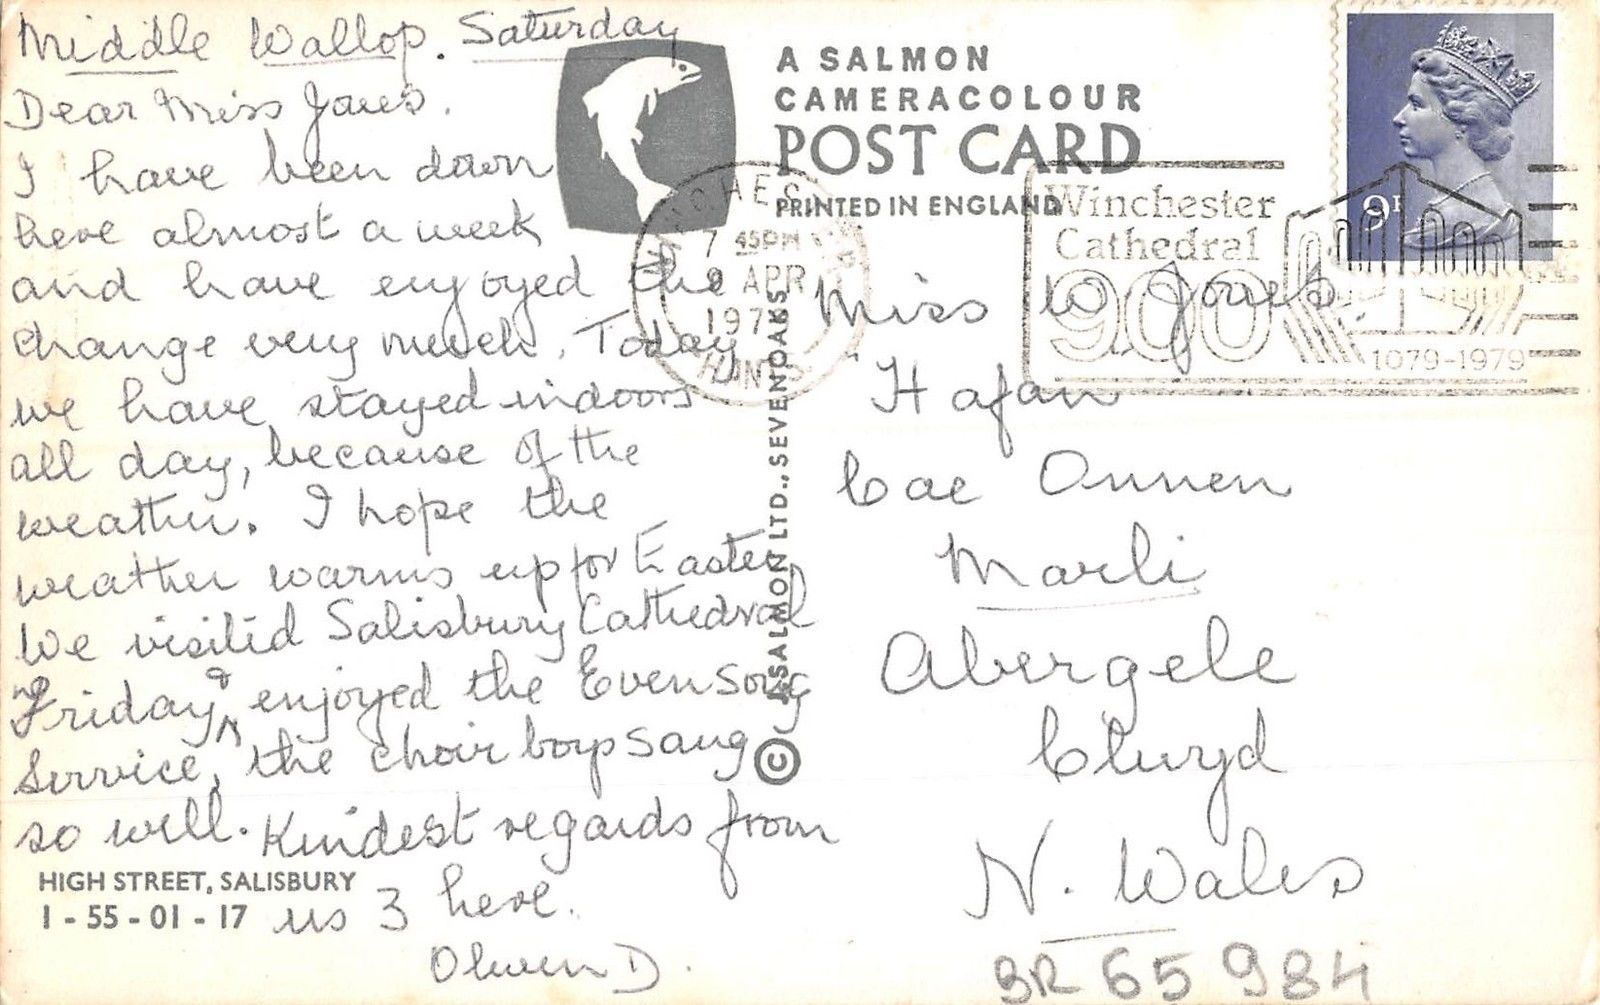 Middle Wallop. Saturday
Dear Miss Jones.
I have been down
here almost a week
and have enjoyed the
change very much. Today
we have stayed indoors
all day, because of the
weather. I hope the
weather warms up for Easter
We visited Salisbury Cathedral
Friday & enjoyed the Evensong
Service, the choir boys sang
so well. Kindest regards from
us 3 here.
Olwen D.
HIGH STREET, SALISBURY
1 - 55 - 01 - 17
A SALMON
CAMERACOLOUR
POST CARD
PRINTED IN ENGLAND
© A SALMON LTD., SEVENOAKS
7 45PM
APR
197
HANTS
Winchester
Cathedral
900
1079-1979
9P
Miss W Jones.
Hafan
Cae Onnen
Marli
Abergele
Clwyd
N. Wales
BR 65984